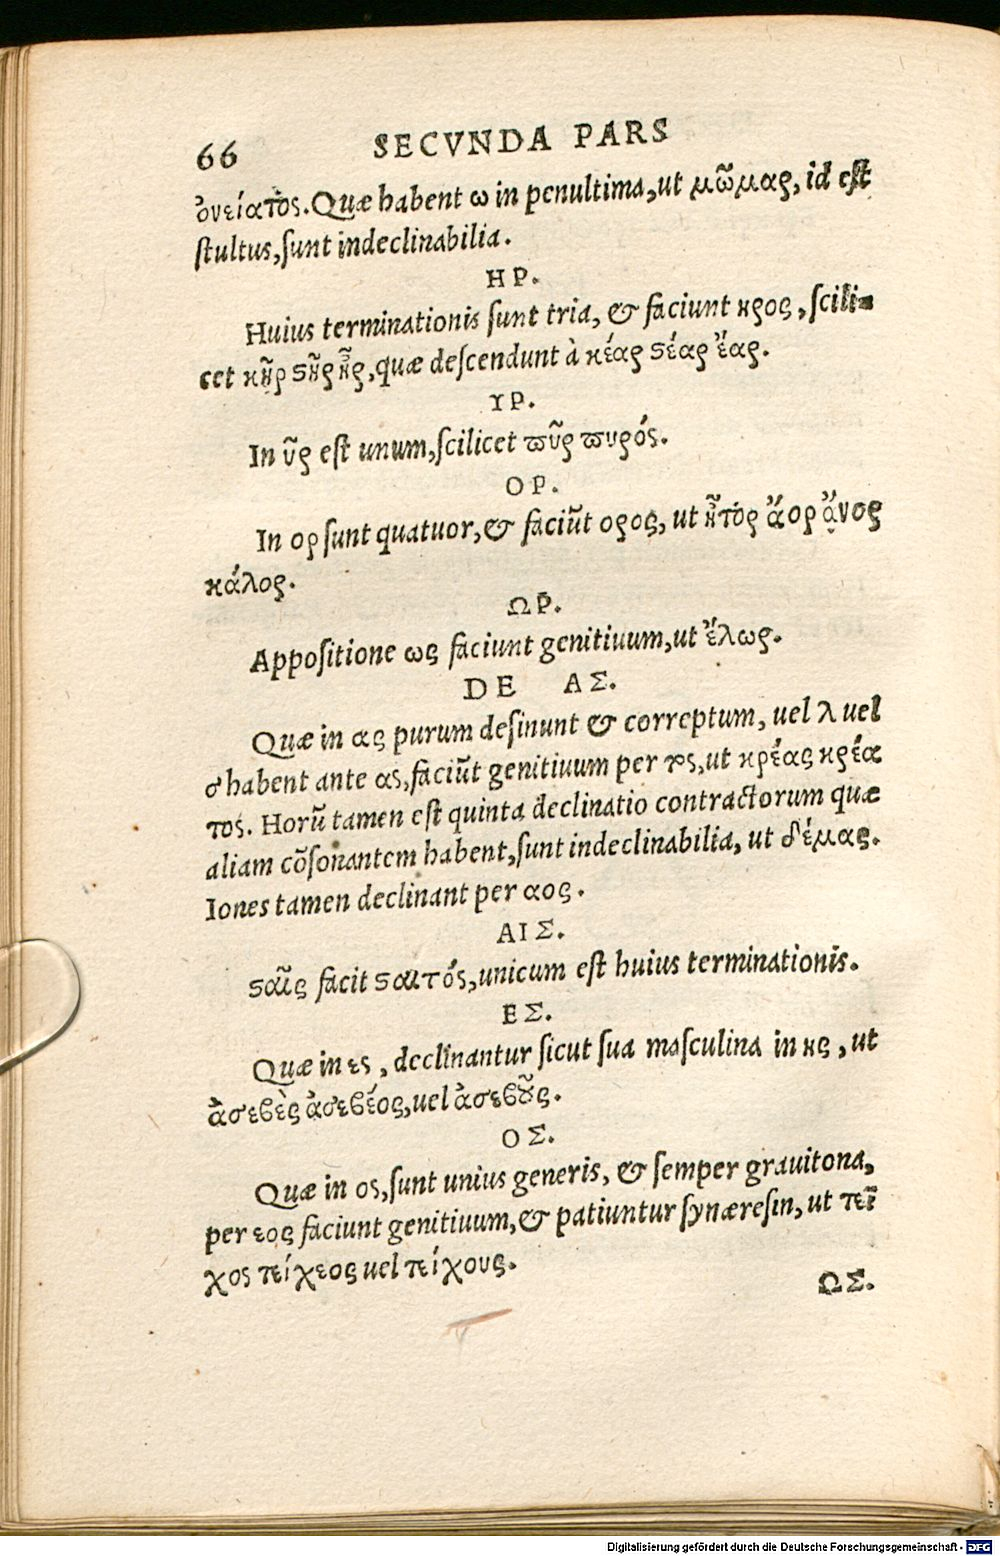 66 SECVNDA PARS
ὀνείατος. Quæ habent ω in penultima, ut μῶμαρ, id est
stultus, sunt indeclinabilia.
ΗΡ.
Huius terminationis sunt tria, & faciunt ηρος, scili-
cet κῆρ στῆρ ἦρ, quæ descendunt à κέαρ στέαρ ἔαρ.
ΥΡ.
In ῦρ est unum, scilicet πῦρ πυρός.
ΟΡ.
In ορ sunt quatuor, & faciũt ορος, ut ἦτορ ἄορ ἄνορ
κάλορ.
ΩΡ.
Appositione ως faciunt genitiuum, ut ἔλωρ.
DE ΑΣ.
Quæ in ας purum desinunt & correptum, uel λ uel
σ habent ante ας, faciũt genitiuum per τος, ut κρέας κρέα
τος. Horũ tamen est quinta declinatio contractorum quæ
aliam cõsonantem habent, sunt indeclinabilia, ut δέμας.
Iones tamen declinant per αος.
ΑΙΣ.
σταῖς facit σταιτός, unicum est huius terminationis.
ΕΣ.
Quæ in ες, declinantur sicut sua masculina in ης, ut
ἀσεβὲς ἀσεβέος, uel ἀσεβοῦς.
ΟΣ.
Quæ in ος, sunt unius generis, & semper grauitona,
per εος faciunt genitiuum, & patiuntur synæresin, ut τεῖ
χος τείχεος uel τείχους.
ΩΣ.
Digitalisierung gefördert durch die Deutsche Forschungsgemeinschaft - DFG